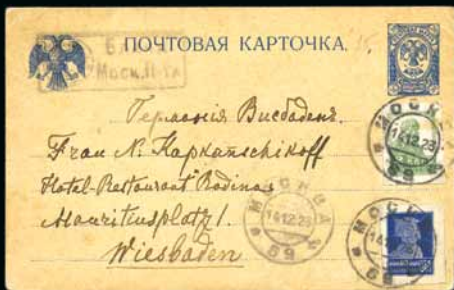 ПОЧТОВАЯ КАРТОЧКА.
Моск. П-Тх
Германія Висбаденъ.
Frau N. Kapkanschikoff
Hotel-Restaurant Rodina
Mauritiusplatz 1.
Wiesbaden
МОСКВА
14.12.23
69
МОСКВА
14.12.23
69
МОСКВА
69